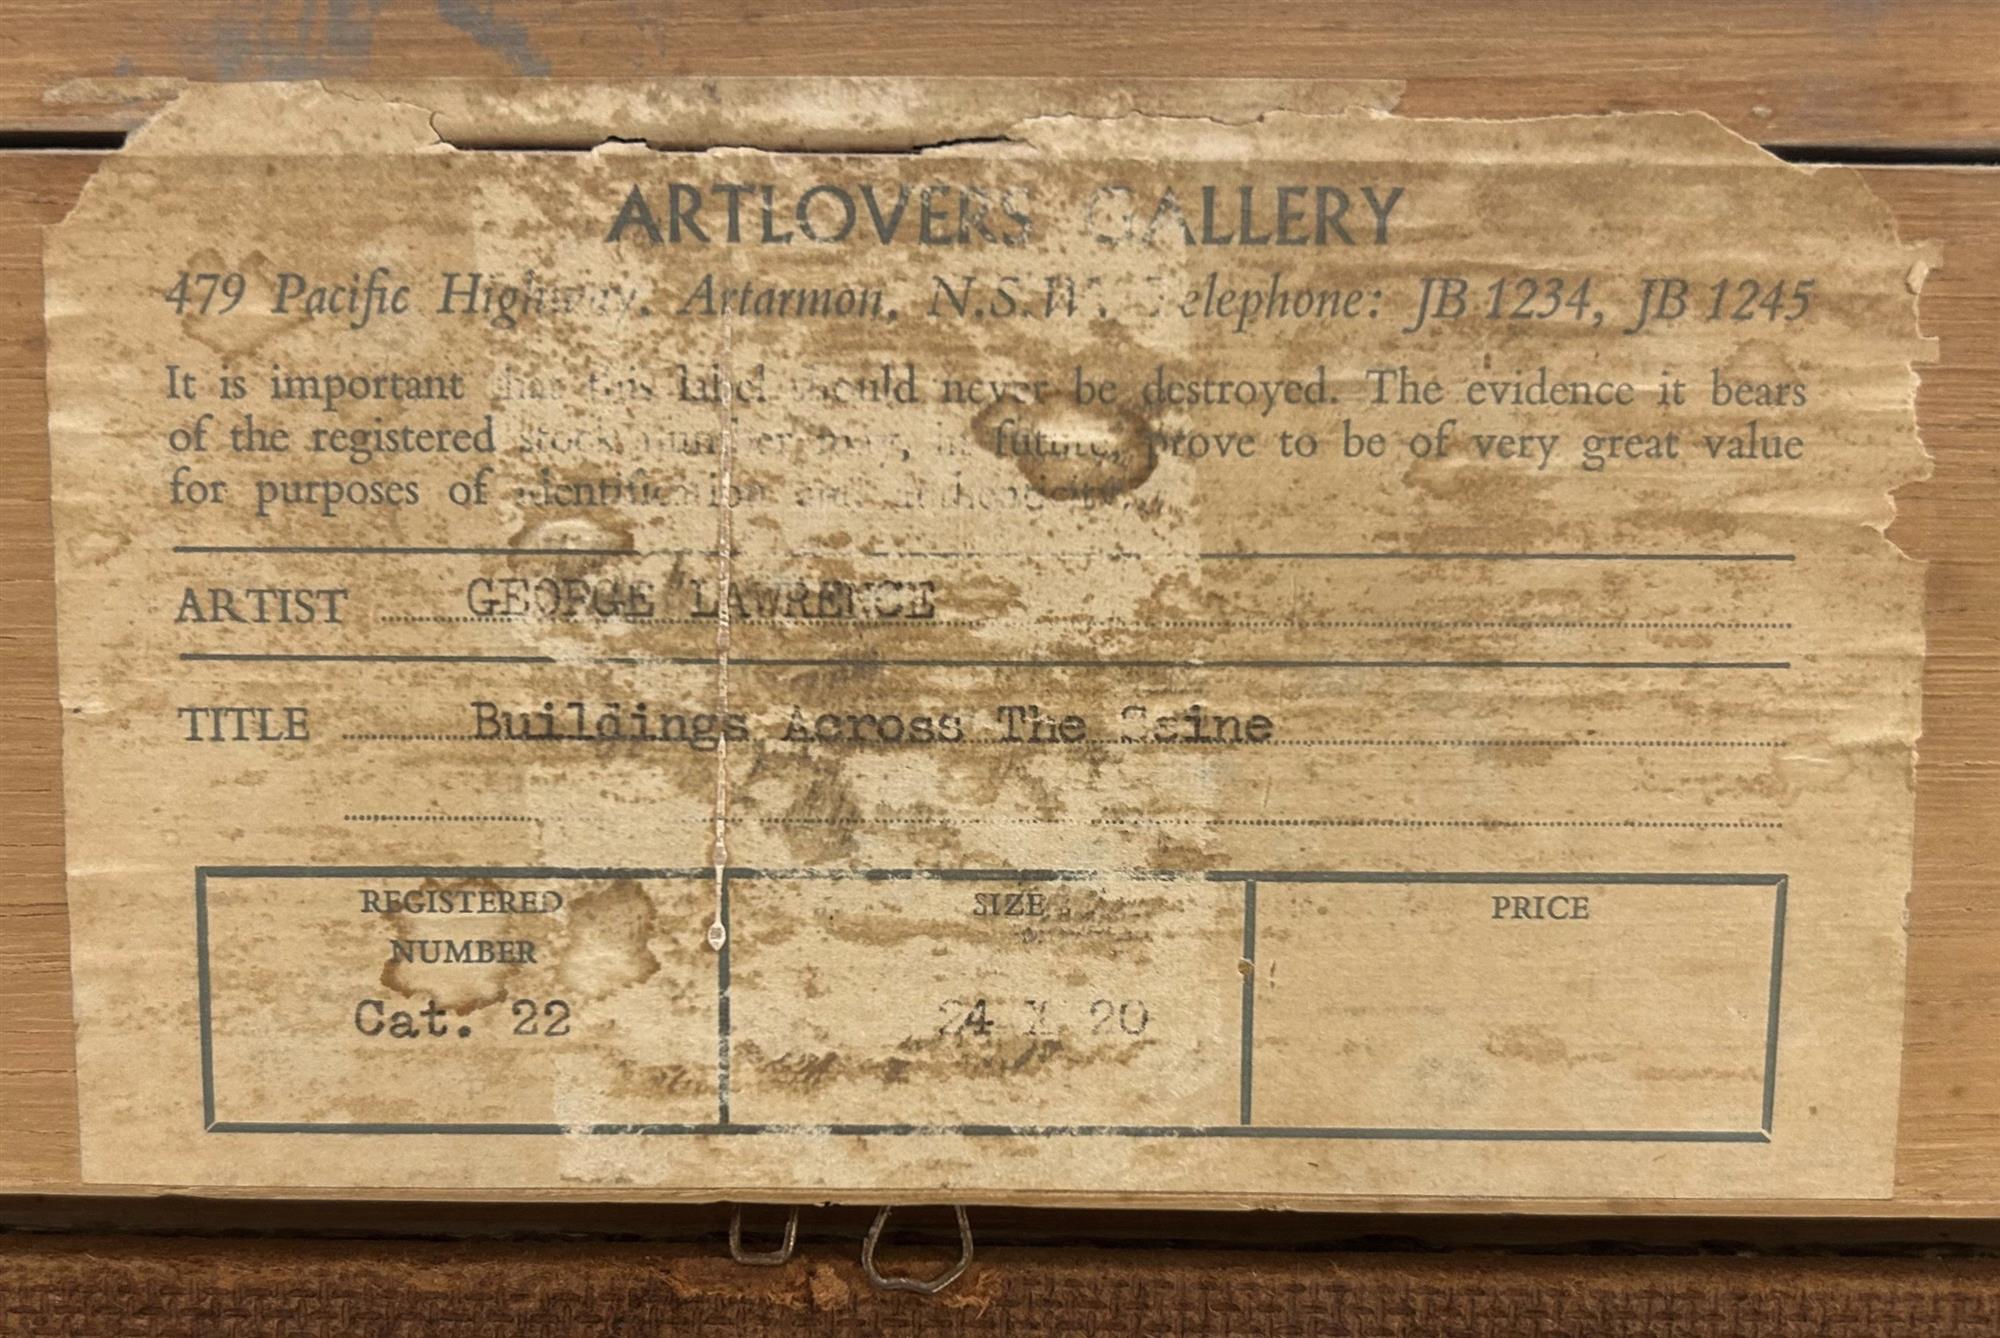 ARTLOVERS GALLERY
479 Pacific Highway, Artarmon, N.S.W. Telephone: JB 1234, JB 1245
It is important that this label should never be destroyed. The evidence it bears
of the registered stock number may, in future, prove to be of very great value
for purposes of identification and authenticity.
ARTIST GEORGE LAWRENCE
TITLE Buildings Across The Seine
REGISTERED NUMBER
SIZE
PRICE
Cat. 22
24 X 20